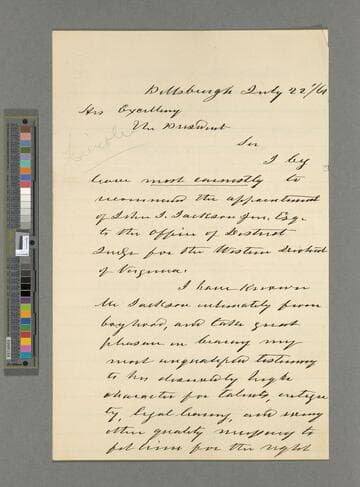 Pittsburgh July 22d/61
His Excellency
The President
Lincoln
Sir
I beg
leave most earnestly to
recommend the appointment
of John J. Jackson Jun. Esq.
to the Office of District
Judge for the Western District
of Virginia.
I have known
Mr Jackson intimately from
boyhood, and take great
pleasure in bearing my
most unqualified testimony
to his deservedly high
character for talents, integri
ty, legal learning, and every
other quality necessary to
fit him for the right